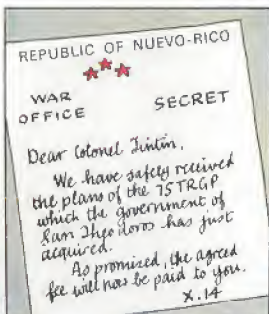 REPUBLIC OF NUEVO-RICO
WAR
OFFICE
SECRET
Dear Colonel Tintin,
We have safely received
the plans of the 75TRGP
which the government of
San Theodoros has just
acquired.
As promised, the agreed
fee will now be paid to you.
X.14